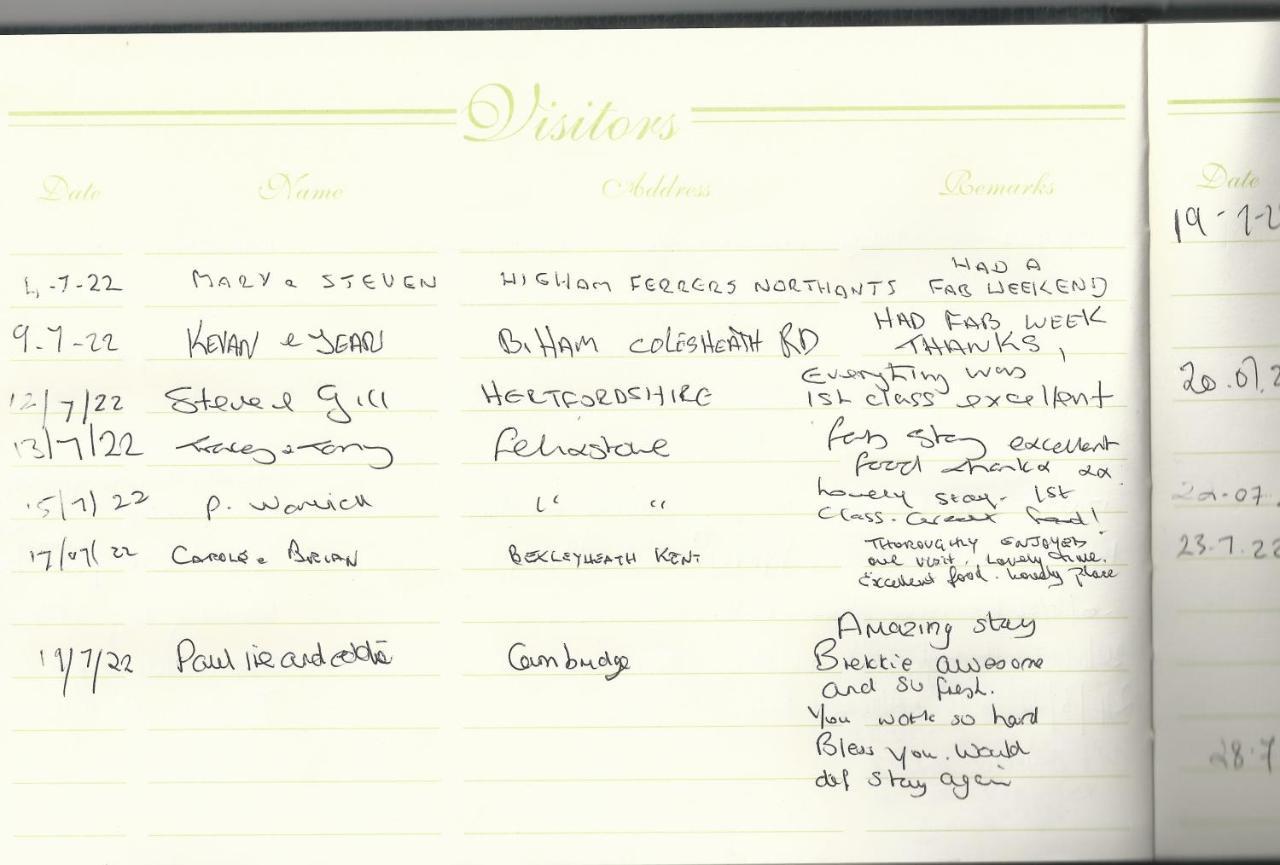 Visitors
Date Name Address Remarks Date
19-7-2
HAD A
4-7-22 MARY & STEVEN HIGHAM FERRERS NORTHANTS FAB WEEKEND
HAD FAB WEEK
9-7-22 KEVAN & JEAN B.HAM COLESHEATH RD THANKS,
Everything was 20.07.2
12/7/22 Steve & Gill HERTFORDSHIRE 1st class excellent
13/7/22 Tracey & Tony Felixstowe fab stay excellent
food thanks xx
15/7/22 P. Warwick " " Lovely stay. 1st 22-07.
class. Great food!
17/07/22 CAROLE & BRIAN BEXLEYHEATH KENT THOROUGHLY ENJOYED 23.7.22
our visit, Lovely time.
Excellent food. Lovely place
Amazing stay
19/7/22 Paul and Cambridge Brekkie awesome
and so fresh.
You work so hard
Bless you. Would 28.7
def stay again